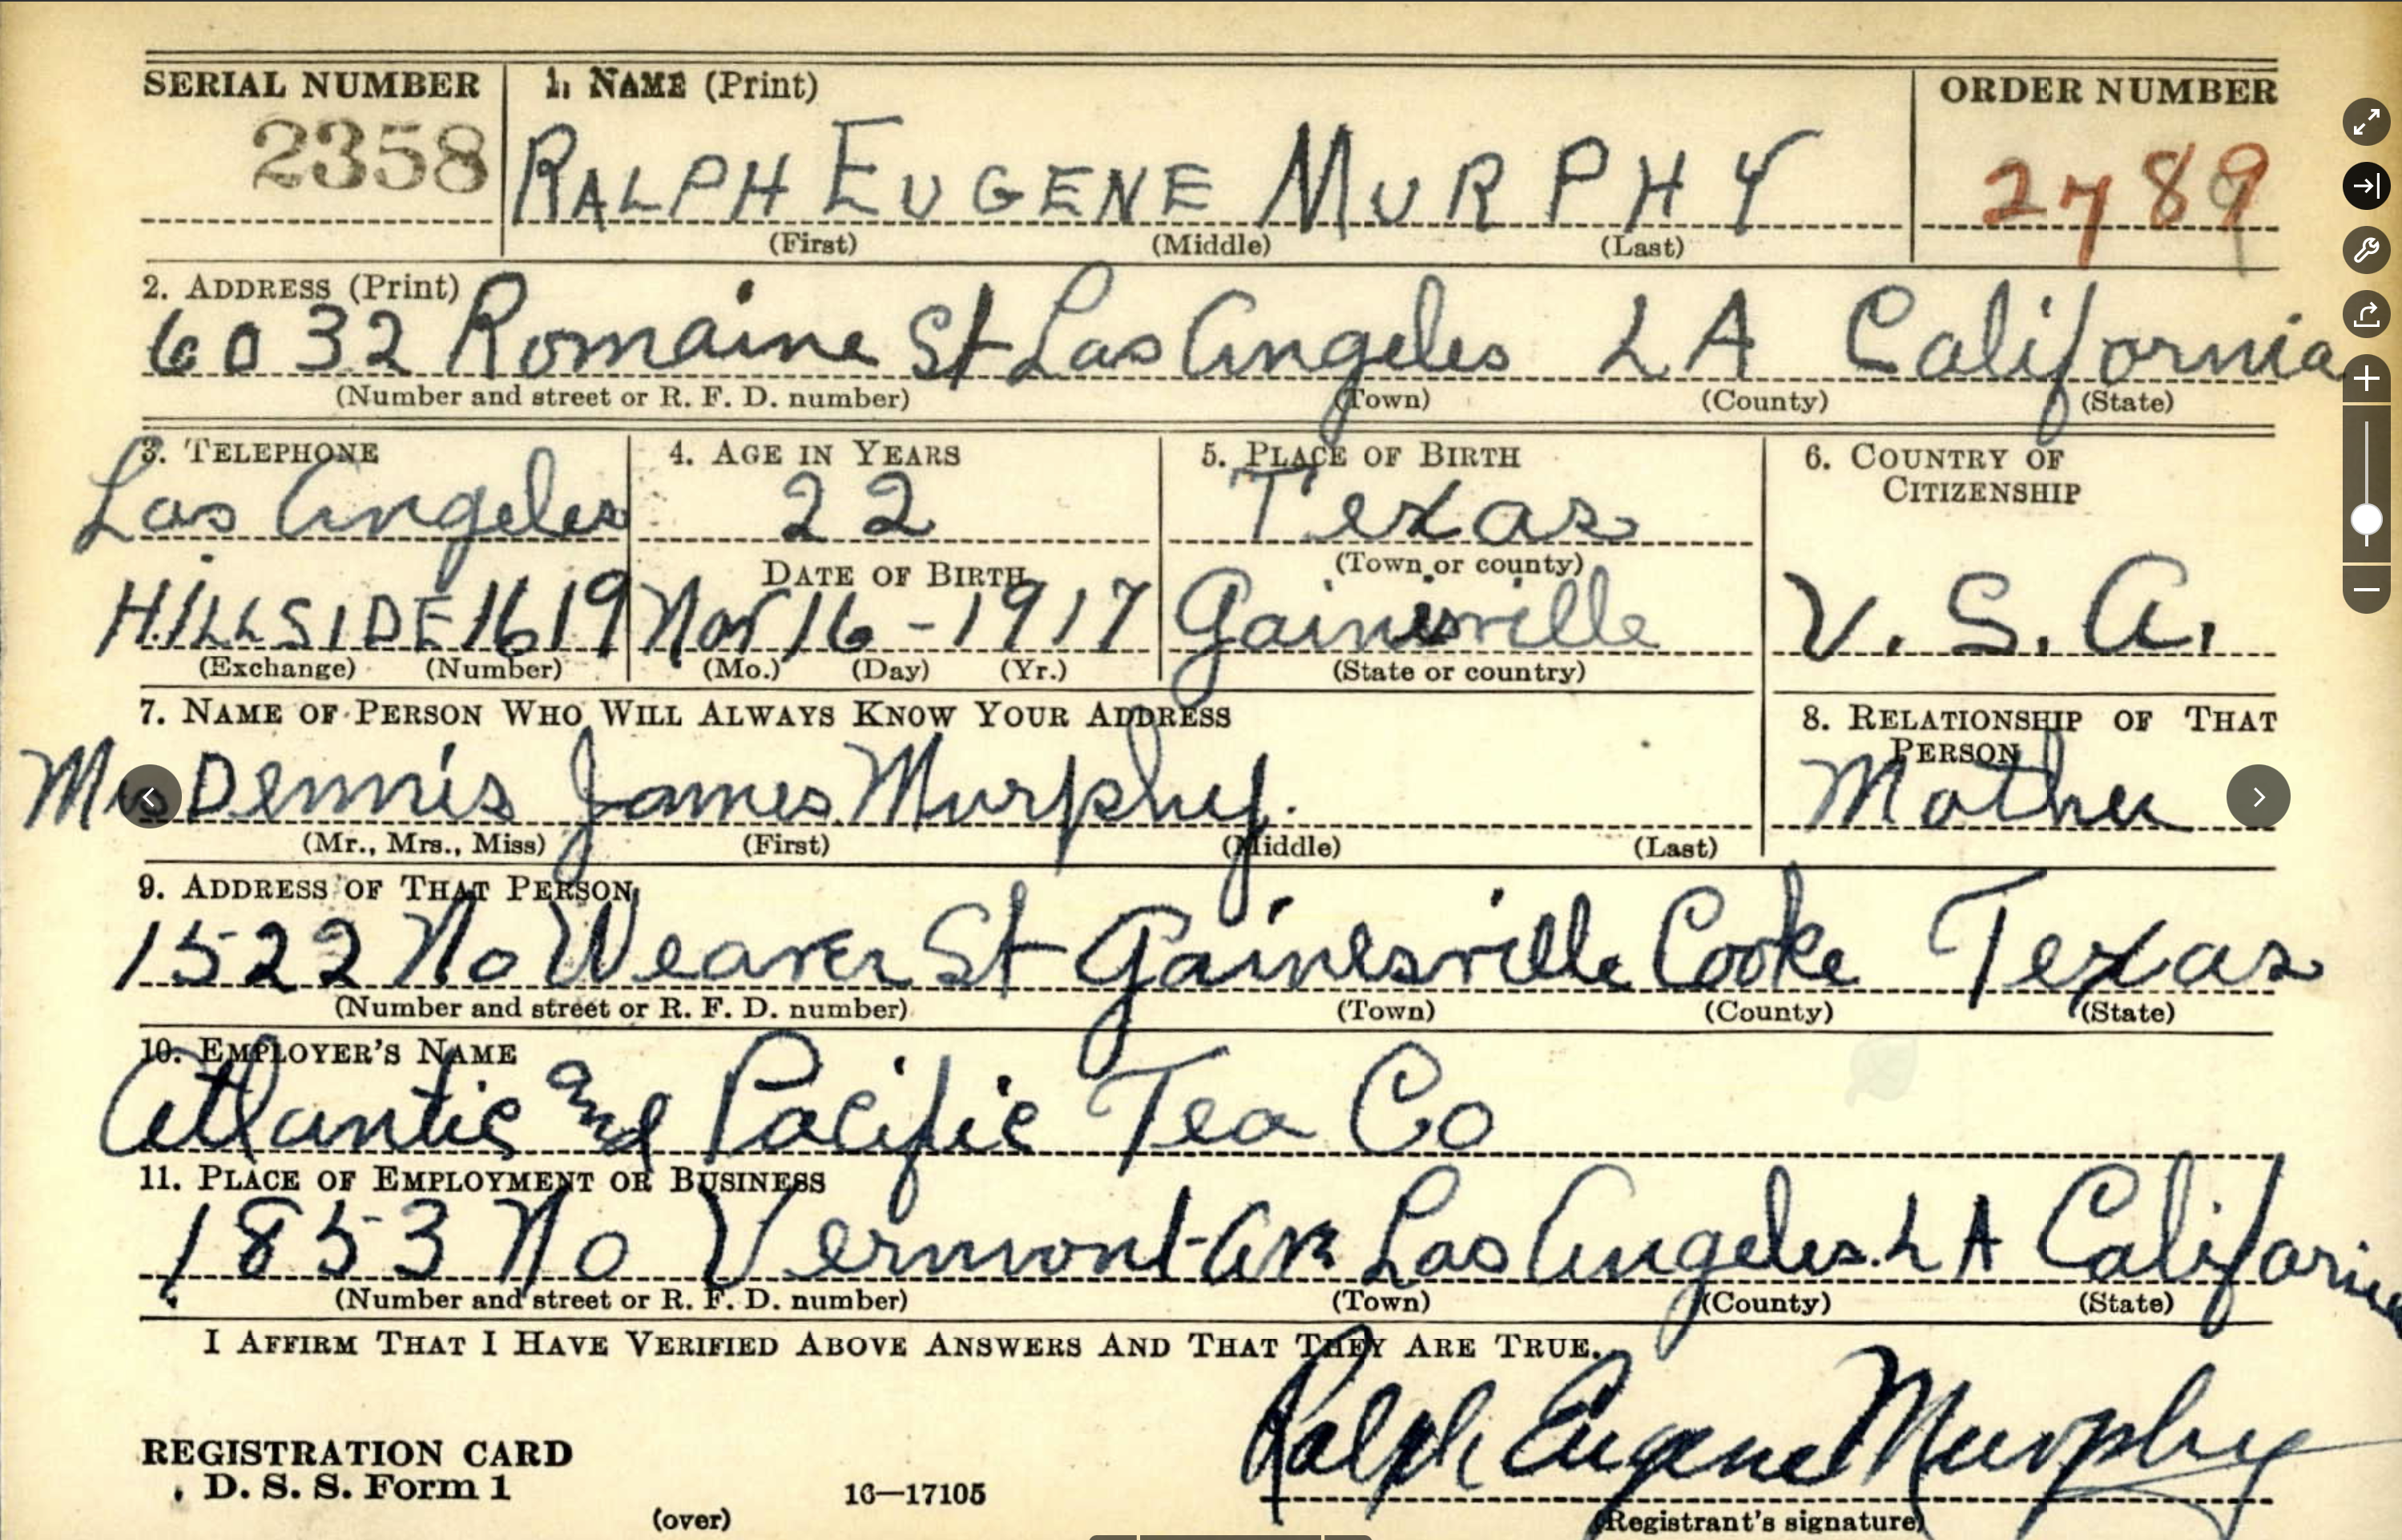 SERIAL NUMBER 1. NAME (Print) ORDER NUMBER
2358 RALPH EUGENE MURPHY 2789
(First) (Middle) (Last)
2. ADDRESS (Print)
6032 Romaine St Los Angeles LA California
(Number and street or R. F. D. number) (Town) (County) (State)
3. TELEPHONE 4. AGE IN YEARS 5. PLACE OF BIRTH 6. COUNTRY OF
CITIZENSHIP
Los Angeles 22 Texas
DATE OF BIRTH (Town or county)
HILLSIDE 1619 Nov 16 - 1917 Gainesville U. S. A.
(Exchange) (Number) (Mo.) (Day) (Yr.) (State or country)
7. NAME OF PERSON WHO WILL ALWAYS KNOW YOUR ADDRESS 8. RELATIONSHIP OF THAT
PERSON
Dennis James Murphy. Mother
(Mr., Mrs., Miss) (First) (Middle) (Last)
9. ADDRESS OF THAT PERSON
1522 No Weaver St Gainesville Cooke Texas
(Number and street or R. F. D. number) (Town) (County) (State)
10. EMPLOYER'S NAME
Atlantic and Pacific Tea Co
11. PLACE OF EMPLOYMENT OR BUSINESS
1853 No Vermont Ave Los Angeles. LA California
(Number and street or R. F. D. number) (Town) (County) (State)
I AFFIRM THAT I HAVE VERIFIED ABOVE ANSWERS AND THAT THEY ARE TRUE.
Ralph Eugene Murphy
REGISTRATION CARD
D. S. S. Form 1 16—17105
(over) (Registrant's signature)